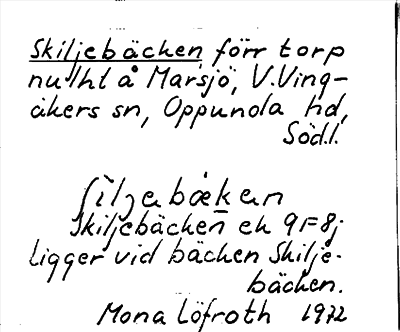 Skiljebäcken, förr torp
nu lht å Marsjö, V. Ving-
åkers sn, Oppunda hd,
Södl.
ʃìljabækan
Skiljebäcken ek 9F8j
ligger vid bäcken Skilje-
bäcken.
Mona Löfroth 1972